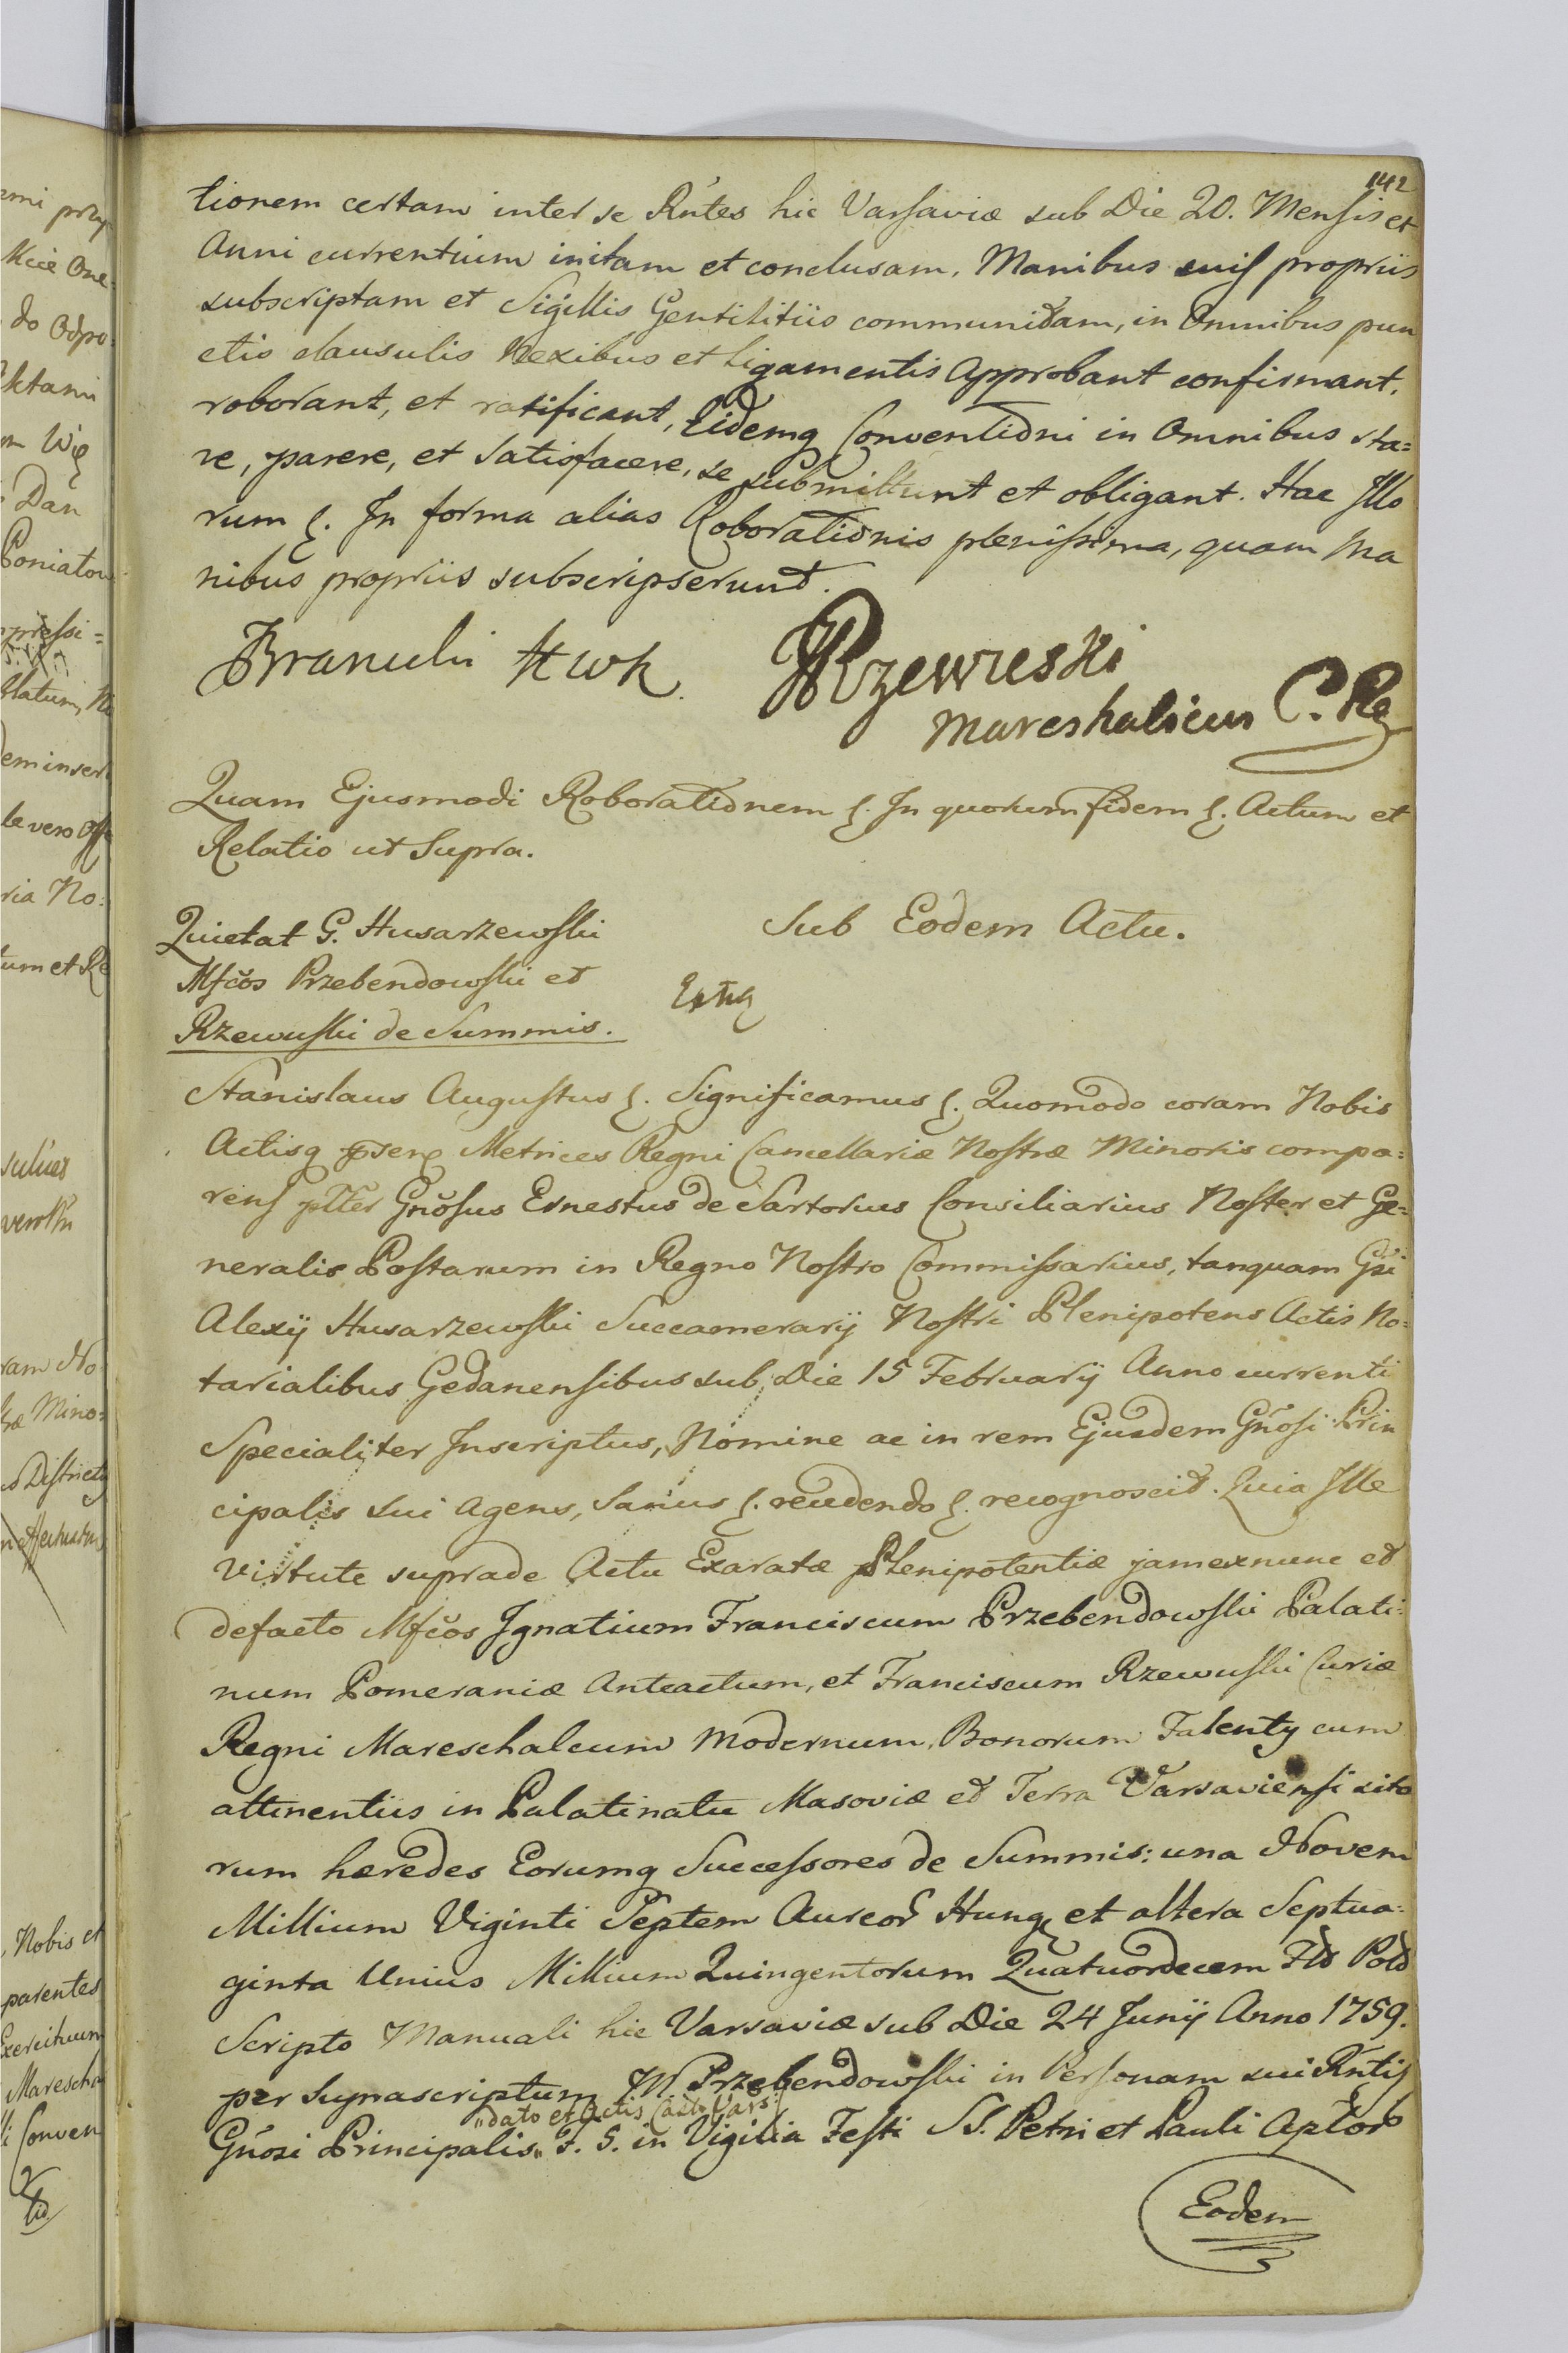 142
tionem certam inter se Rńtes hic Varsaviæ sub Die 20. Mensis et
Anni currentium initam et conclusam, Manibus suis propriis
subscriptam et Sigillis Gentilitiis communitam, in Omnibus pun
ctis clausulis Nexibus et Ligamentis Approbant confirmant,
roborant, et ratificant, Eidemq Conventioni in Omnibus sta=
re, parere, et Satisfacere, se submittunt et obligant. Hac Illo
rum §. In forma alias Roborationis plenissima, quam Ma
nibus propriis subscripserunt.
Branicki H W K.
FRzewuski
Mareshalicus C. Re
Quam Ejusmodi Roborationem §. In quorum fidem §. Actum et
Relatio ut Supra.
Quietat G. Husarzewski
Mfcos Przebendowski et
Rzewuski de Summis.
Sub Eodem Actu.
Stanislaus Augustus §. Significamus §. Quomodo coram Nobis
Actisq Metrices Regni Cancellariæ Nostræ Minoris compa=
rens pltter Gńosus Ernestus de Sartorius Consiliarius Noster et Ge=
neralis Postarum in Regno Nostro Commissarius, tanquam Gsi
Alexij Husarzewski Succamerarij Nostri Plenipotens Actis No=
tarialibus Gedanensibus sub Die 15 Februarij Anno currenti
Specialiter Inscriptus, Nomine ac in rem Ejusdem Gńosi Prin
cipalis sui Agens, Sanus §. recedendo §. recognoscit. Quia Ille
Virtute suprade Actu Exaratæ Plenipotentiæ jamexnunc et
defacto Mfcos Ignatium Franciscum Przebendowski Palati=
num Pomeraniæ Anteactum, et Franciscum Rzewuski Curiæ
Regni Mareschalcum Modernum, Bonorum Falenty cum
attinentiis in Palatinatu Masoviæ et Terra Varsaviensi sito
rum hæredes Eorumq Successores de Summis: una Novem
Millium Viginti Septem Aureor Hung et altera Septua=
ginta Unius Millium Quingentorum Quatuordecem Flo Pold
Scripto Manuali hic Varsaviæ sub Die 24 Junij Anno 1759.
per Suprascriptum M. Przebendowski in Personam sui Rńtis
„dato et Actis Castr Vars:
Gńosi Principalis„ F. S. in Vigilia Festi SS. Petri et Pauli Aptor
Eodem